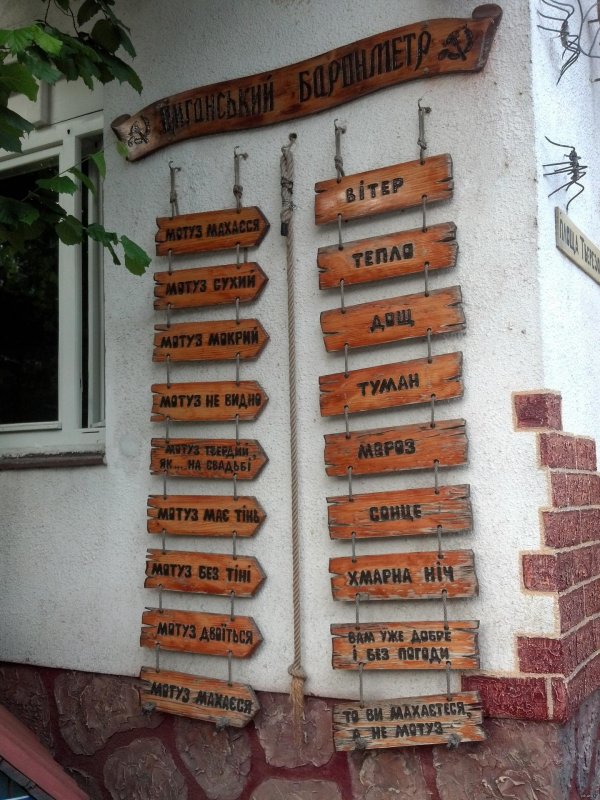 Циганський барометр
мотуз махаєся
вітер
мотуз сухий
тепло
мотуз мокрий
дощ
мотуз не видно
туман
мотуз твердий,
як... на свадьбі
мороз
мотуз має тінь
сонце
мотуз без тіні
хмарна ніч
мотуз двоїться
вам уже добре
і без погоди
мотуз махаєся
то ви махаєтеся,
а не мотуз
площа